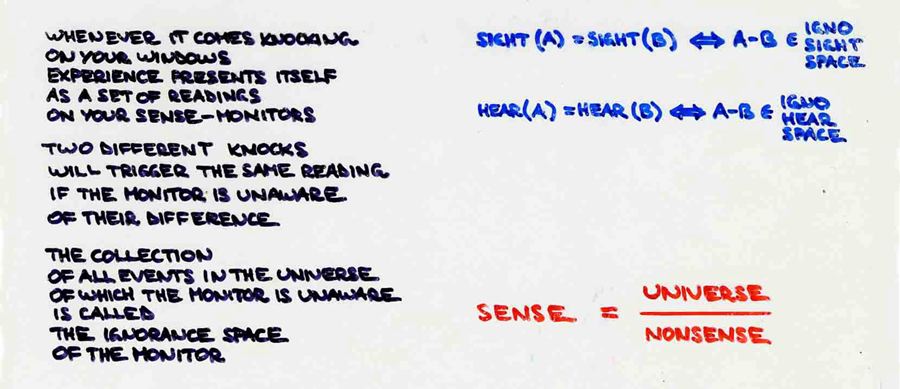 WHENEVER IT COMES KNOCKING
ON YOUR WINDOWS
EXPERIENCE PRESENTS ITSELF
AS A SET OF READINGS
ON YOUR SENSE-MONITORS
TWO DIFFERENT KNOCKS
WILL TRIGGER THE SAME READING
IF THE MONITOR IS UNAWARE
OF THEIR DIFFERENCE
THE COLLECTION
OF ALL EVENTS IN THE UNIVERSE
OF WHICH THE MONITOR IS UNAWARE
IS CALLED
THE IGNORANCE SPACE
OF THE MONITOR
SIGHT (A) = SIGHT (B) ⇔ A-B ∈ IGNO
SIGHT
SPACE
HEAR (A) = HEAR (B) ⇔ A-B ∈ IGNO
HEAR
SPACE
SENSE = UNIVERSE
NONSENSE